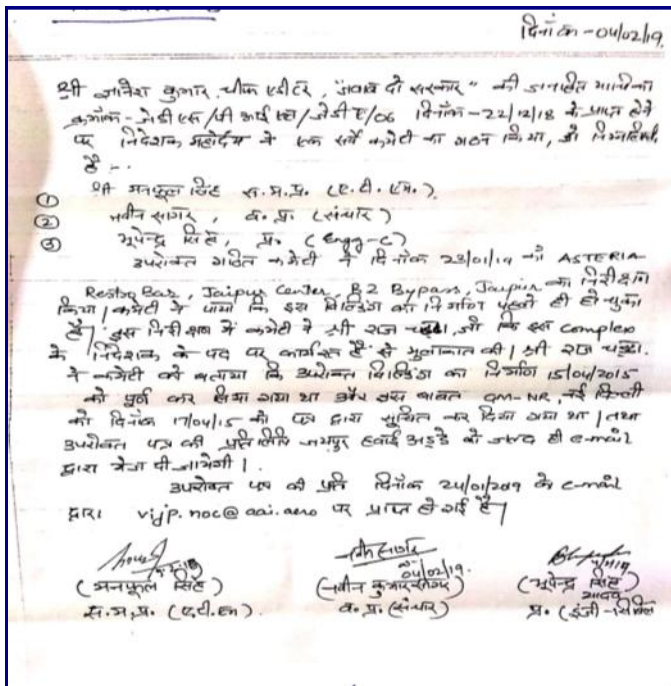 दिनांक - 04/02/19
श्री ज्ञानेश कुमार, चीफ एडीटर, "जवाब दो सरकार" की जनहित याचिका
क्रमांक - जेडीएस/पी आई एल/जेडीए/06 दिनांक - 22/12/18 के प्राप्त होने
पर निदेशक महोदय ने एक सर्वे कमेटी का गठन किया, जो निम्नलिखित
है :-
① श्री मनफूल सिंह स.म.प्र. (ए.टी.एम.)
② नवीन सागर, व.प्र. (संचार)
③ भूपेन्द्र सिंह, प्र. (Engg-C)
उपरोक्त गठित कमेटी ने दिनांक 23/01/19 को ASTERIA
Restro Bar, Jaipur Center, B2 Bypass, Jaipur का निरीक्षण
किया। कमेटी ने पाया कि इस बिल्डिंग का निर्माण पहले ही हो चुका
है। इस निरीक्षण में कमेटी ने श्री राज चड्डा, जो कि इस complex
के निदेशक के पद पर कार्यरत हैं से मुलाकात की। श्री राज चड्डा
ने कमेटी को बताया कि उपरोक्त बिल्डिंग का निर्माण 15/04/2015
को पूर्ण कर लिया गया था और इस बाबत GM-NR, नई दिल्ली
को दिनांक 17/04/15 को पत्र द्वारा सूचित कर दिया गया था। तथा
उपरोक्त पत्र की प्रतिलिपि जयपुर हवाई अड्डे को जल्द ही e-mail
द्वारा भेजा दी जायेगी।
उपरोक्त पत्र की प्रति दिनांक 24/01/2019 के e-mail
द्वारा vijp.noc@aai.aero पर प्राप्त हो गई है।
04/02/19
(मनफूल सिंह) (नवीन कुमार सागर) (भूपेन्द्र सिंह यादव)
स.म.प्र. (ए.टी.एम) व.प्र. (संचार) प्र. (इंजी-सिविल